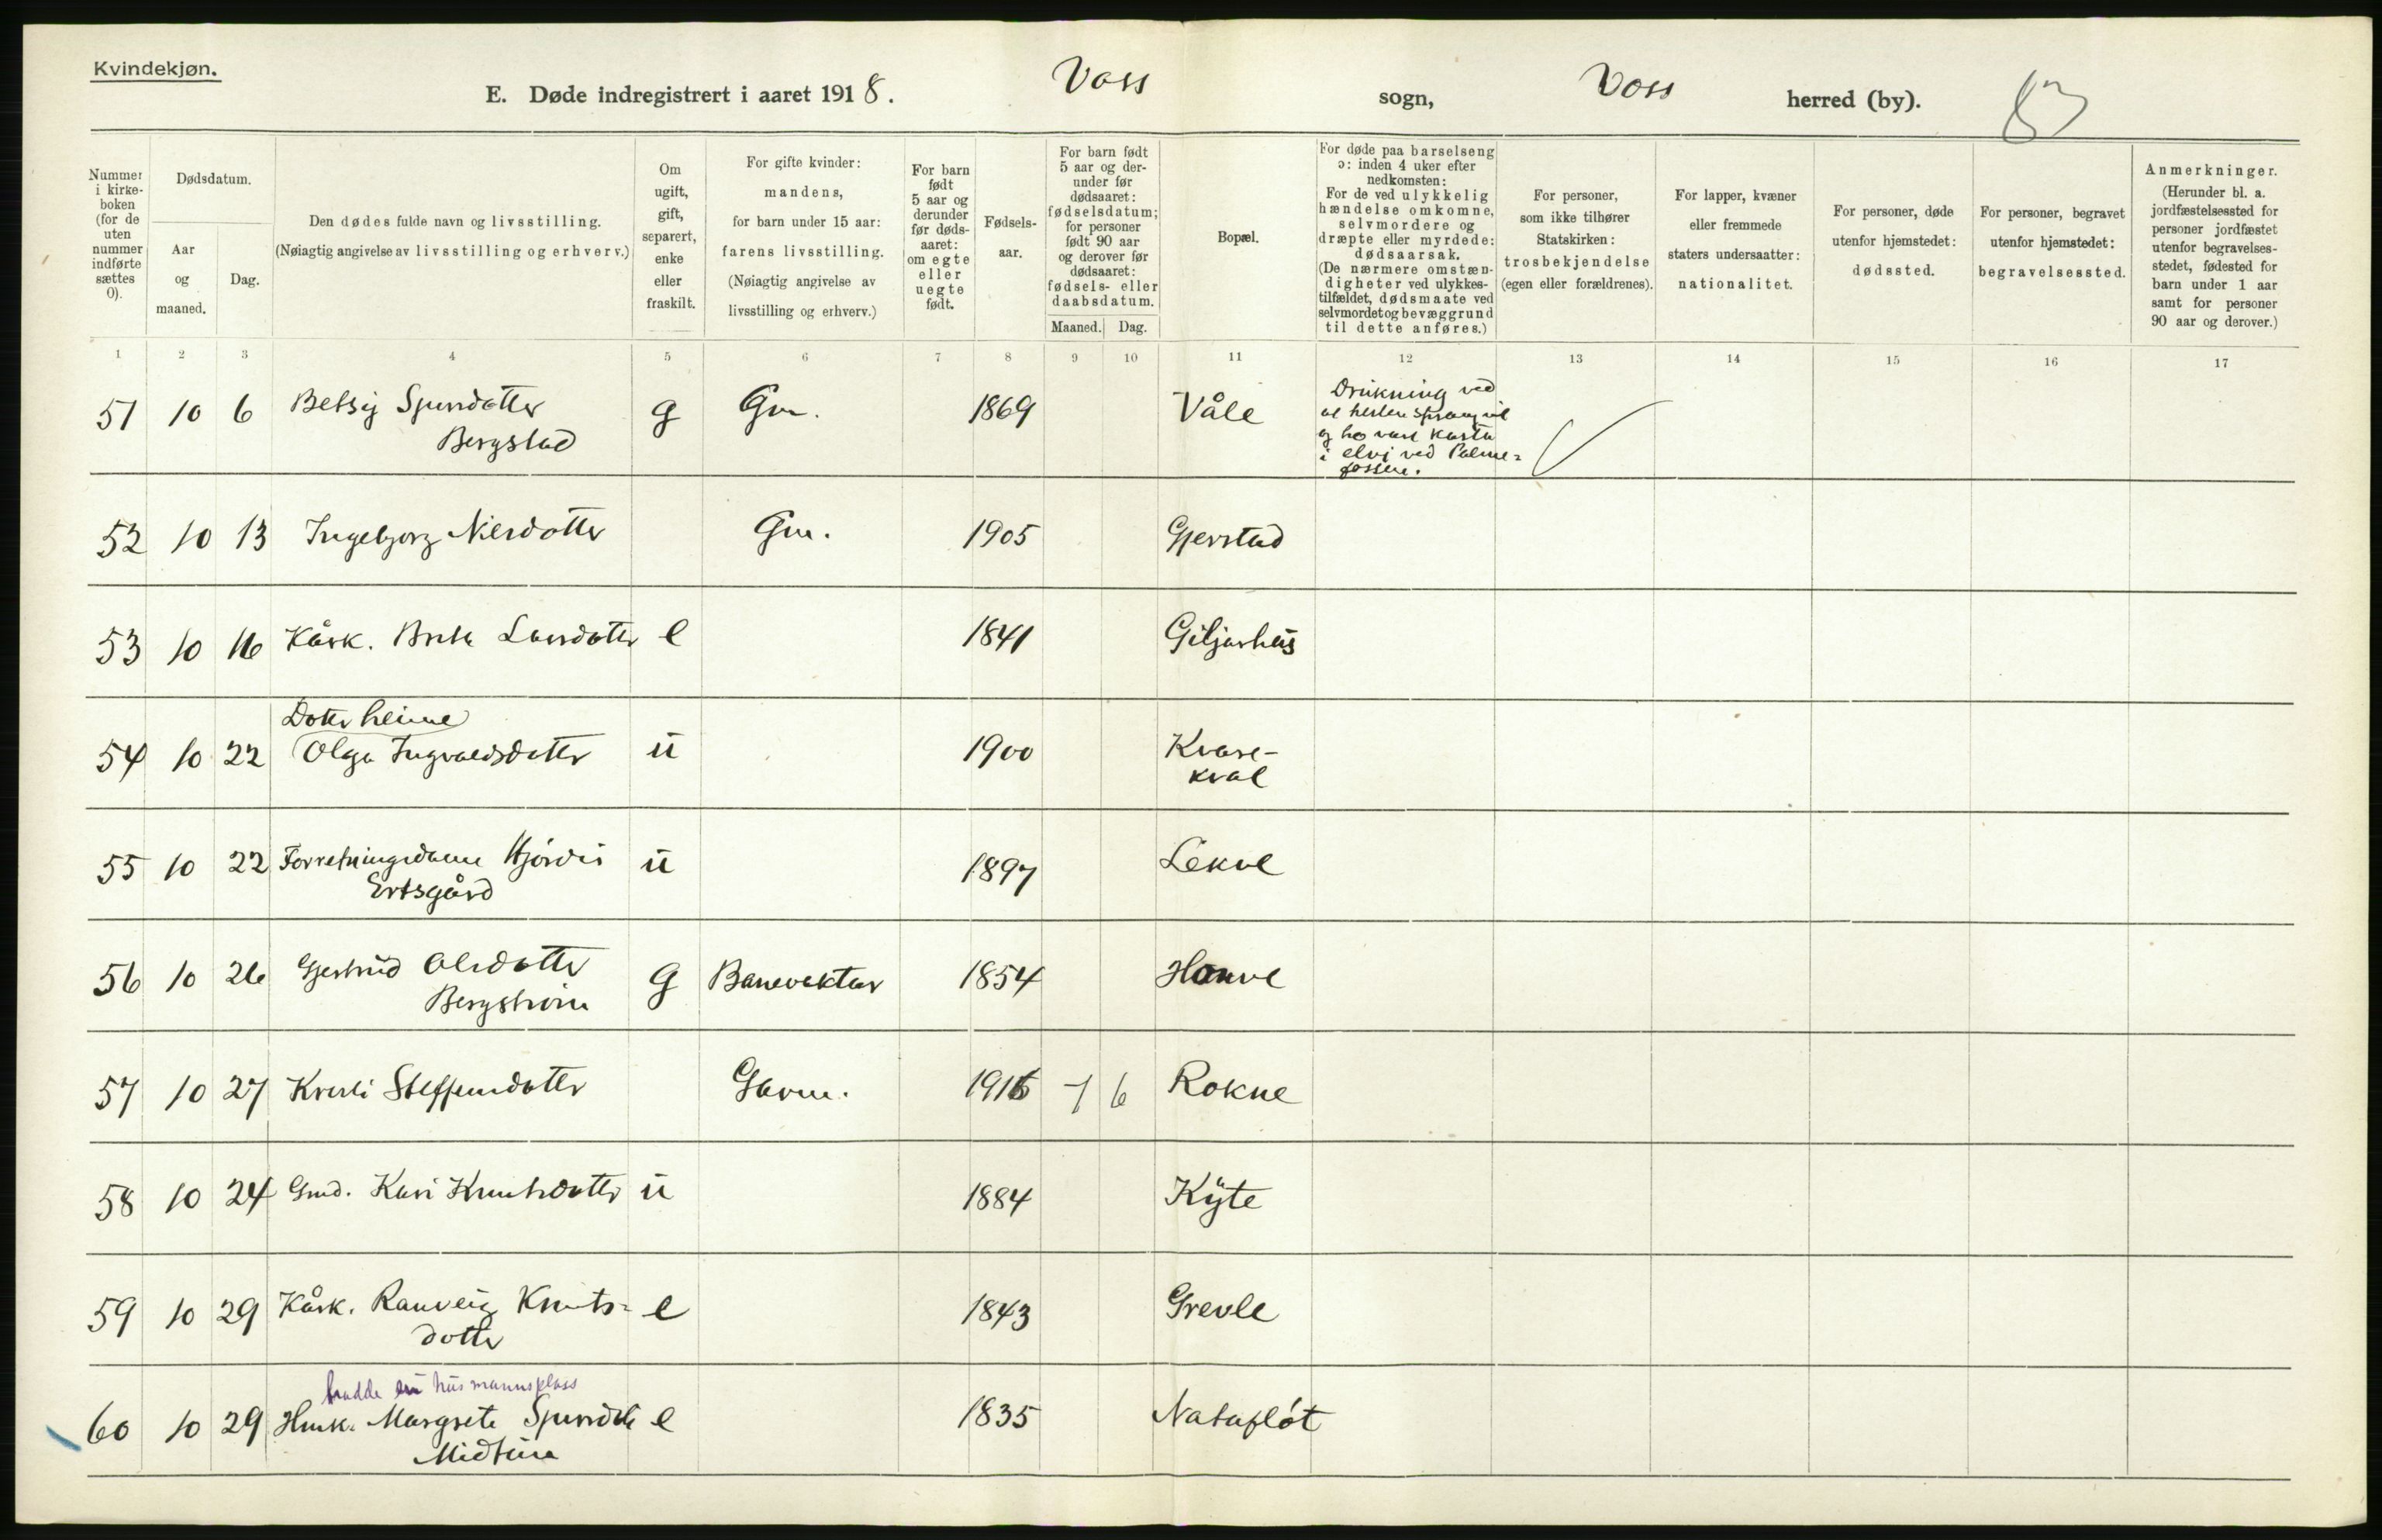 Kvindekjøn.
E. Døde indregistrert i aaret 1918. Voss sogn, Voss herred (by). 83
Nummer i kirke-boken (for de uten nummer indførte sættes 0).
Dødsdatum.
Aar og maaned.
Dag.
Den dødes fulde navn og livsstilling.
(Nøiagtig angivelse av livsstilling og erhverv.)
Om ugift, gift, separert, enke eller fraskilt.
For gifte kvinder: mandens, for barn under 15 aar: farens livsstilling.
(Nøiagtig angivelse av livsstilling og erhverv.)
For barn født 5 aar og derunder før døds-aaret: om egte eller uegte født.
Fødsels-aar.
For barn født 5 aar og der-under før dødsaaret: fødselsdatum; for personer født 90 aar og derover før dødsaaret: fødsels- eller daabsdatum.
Maaned. Dag.
Bopæl.
For døde paa barselseng ɔ: inden 4 uker efter nedkomsten:
For de ved ulykkelig hændelse omkomne, selvmordere og dræpte eller myrdede: dødsaarsak.
(De nærmere omstæn-digheter ved ulykkes-tilfældet, dødsmaate ved selvmordet og bevæggrund til dette anføres.)
For personer, som ikke tilhører Statskirken: trosbekjendelse (egen eller forældrenes).
For lapper, kvæner eller fremmede staters undersaatter: nationalitet.
For personer, døde utenfor hjemstedet: dødssted.
For personer, begravet utenfor hjemstedet: begravelsessted.
Anmerkninger.
(Herunder bl. a. jordfæstelsessted for personer jordfæstet utenfor begravelses-stedet, fødested for barn under 1 aar samt for personer 90 aar og derover.)
1 2 3 4 5 6 7 8 9 10 11 12 13 14 15 16 17
51 10 6 Betsy Sjursdotter g Gm. 1869 Våle Drukning ved
Bergstad
at hesten sprang ut
og ho vart kasta
i elvi ved Palme-
fossen.
52 10 13 Ingebjorg Nilsdotter Gm. 1905 Gjerstad
53 10 16 Kårk. Brita Larsdotter e 1841 Giljarhus
Dotter heime
54 10 22 Olga Ingvaldsdotter ŭ 1900 Kvare-
kval
55 10 22 Forretningsdame Hjördis ŭ 1897 Lekve
Ertsgård
56 10 26 Gjertrud Olsdotter g Banevaktar 1854
Bergstrøm
57 10 27 Steffensdotter 1916 7 6 Rokne
58 10 24 Gmd. Kari Knutsdotter ŭ 1884 Kyte
59 10 29 Kårk. Ranveig Knuts- e 1843 Grevle
dotter
hadde husmannsplass
60 10 29 Hmk. Margreta Sjursdtr e 1835 Nataflót
Midtun